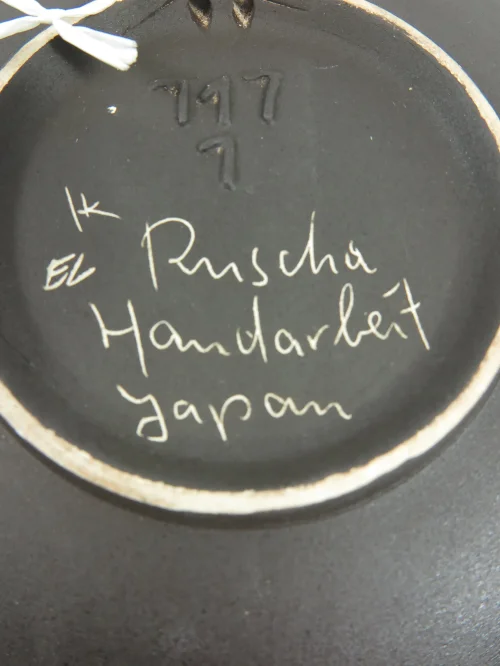 717
1
K
EL Ruscha
Handarbeit
Japan